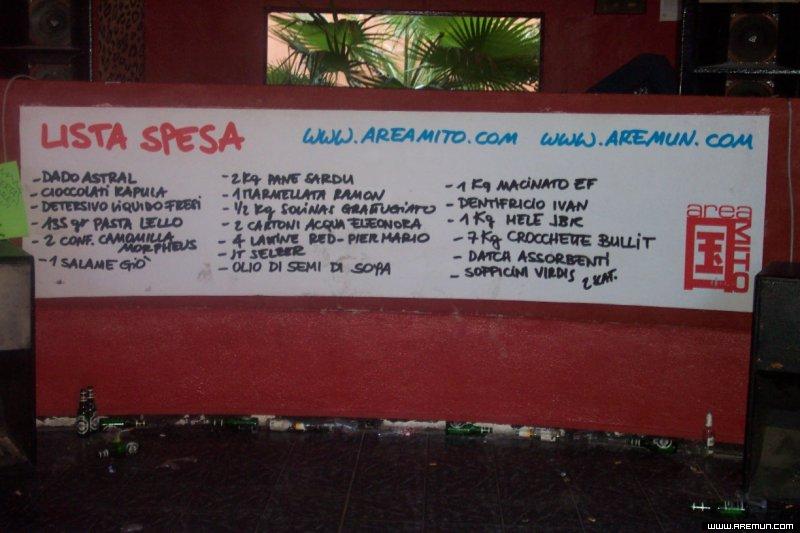 LISTA SPESA
WWW.AREAMITO.COM WWW.AREMUN.COM
- DADO ASTRAL
- CIOCCOLATI KAPULA
- DETERSIVO LIQUIDO FRESI
- 135 gr PASTA LELLO
- 2 CONF. CAMOMILLA
MORPHEUS
- 1 SALAME GIÒ
- 2 Kg PANE SARDU
- 1 MARMELLATA RAMON
- ½ Kg SOLINAS GRATTUGIATO
- 2 CARTONI ACQUA ELEONORA
- 4 LAMINE RED-PIERMARIO
- JT SELBER
- OLIO DI SEMI DI SOYA
- 1 Kg MACINATO EF
- DENTIFRICIO IVAN
- 1 Kg MELE JBK
- 7 Kg CROCCHETTE BULLIT
- DATCH ASSORBENTI
- SOFFICINI VIRDIS 2 KAT.
area
MITO
WWW.AREMUN.COM